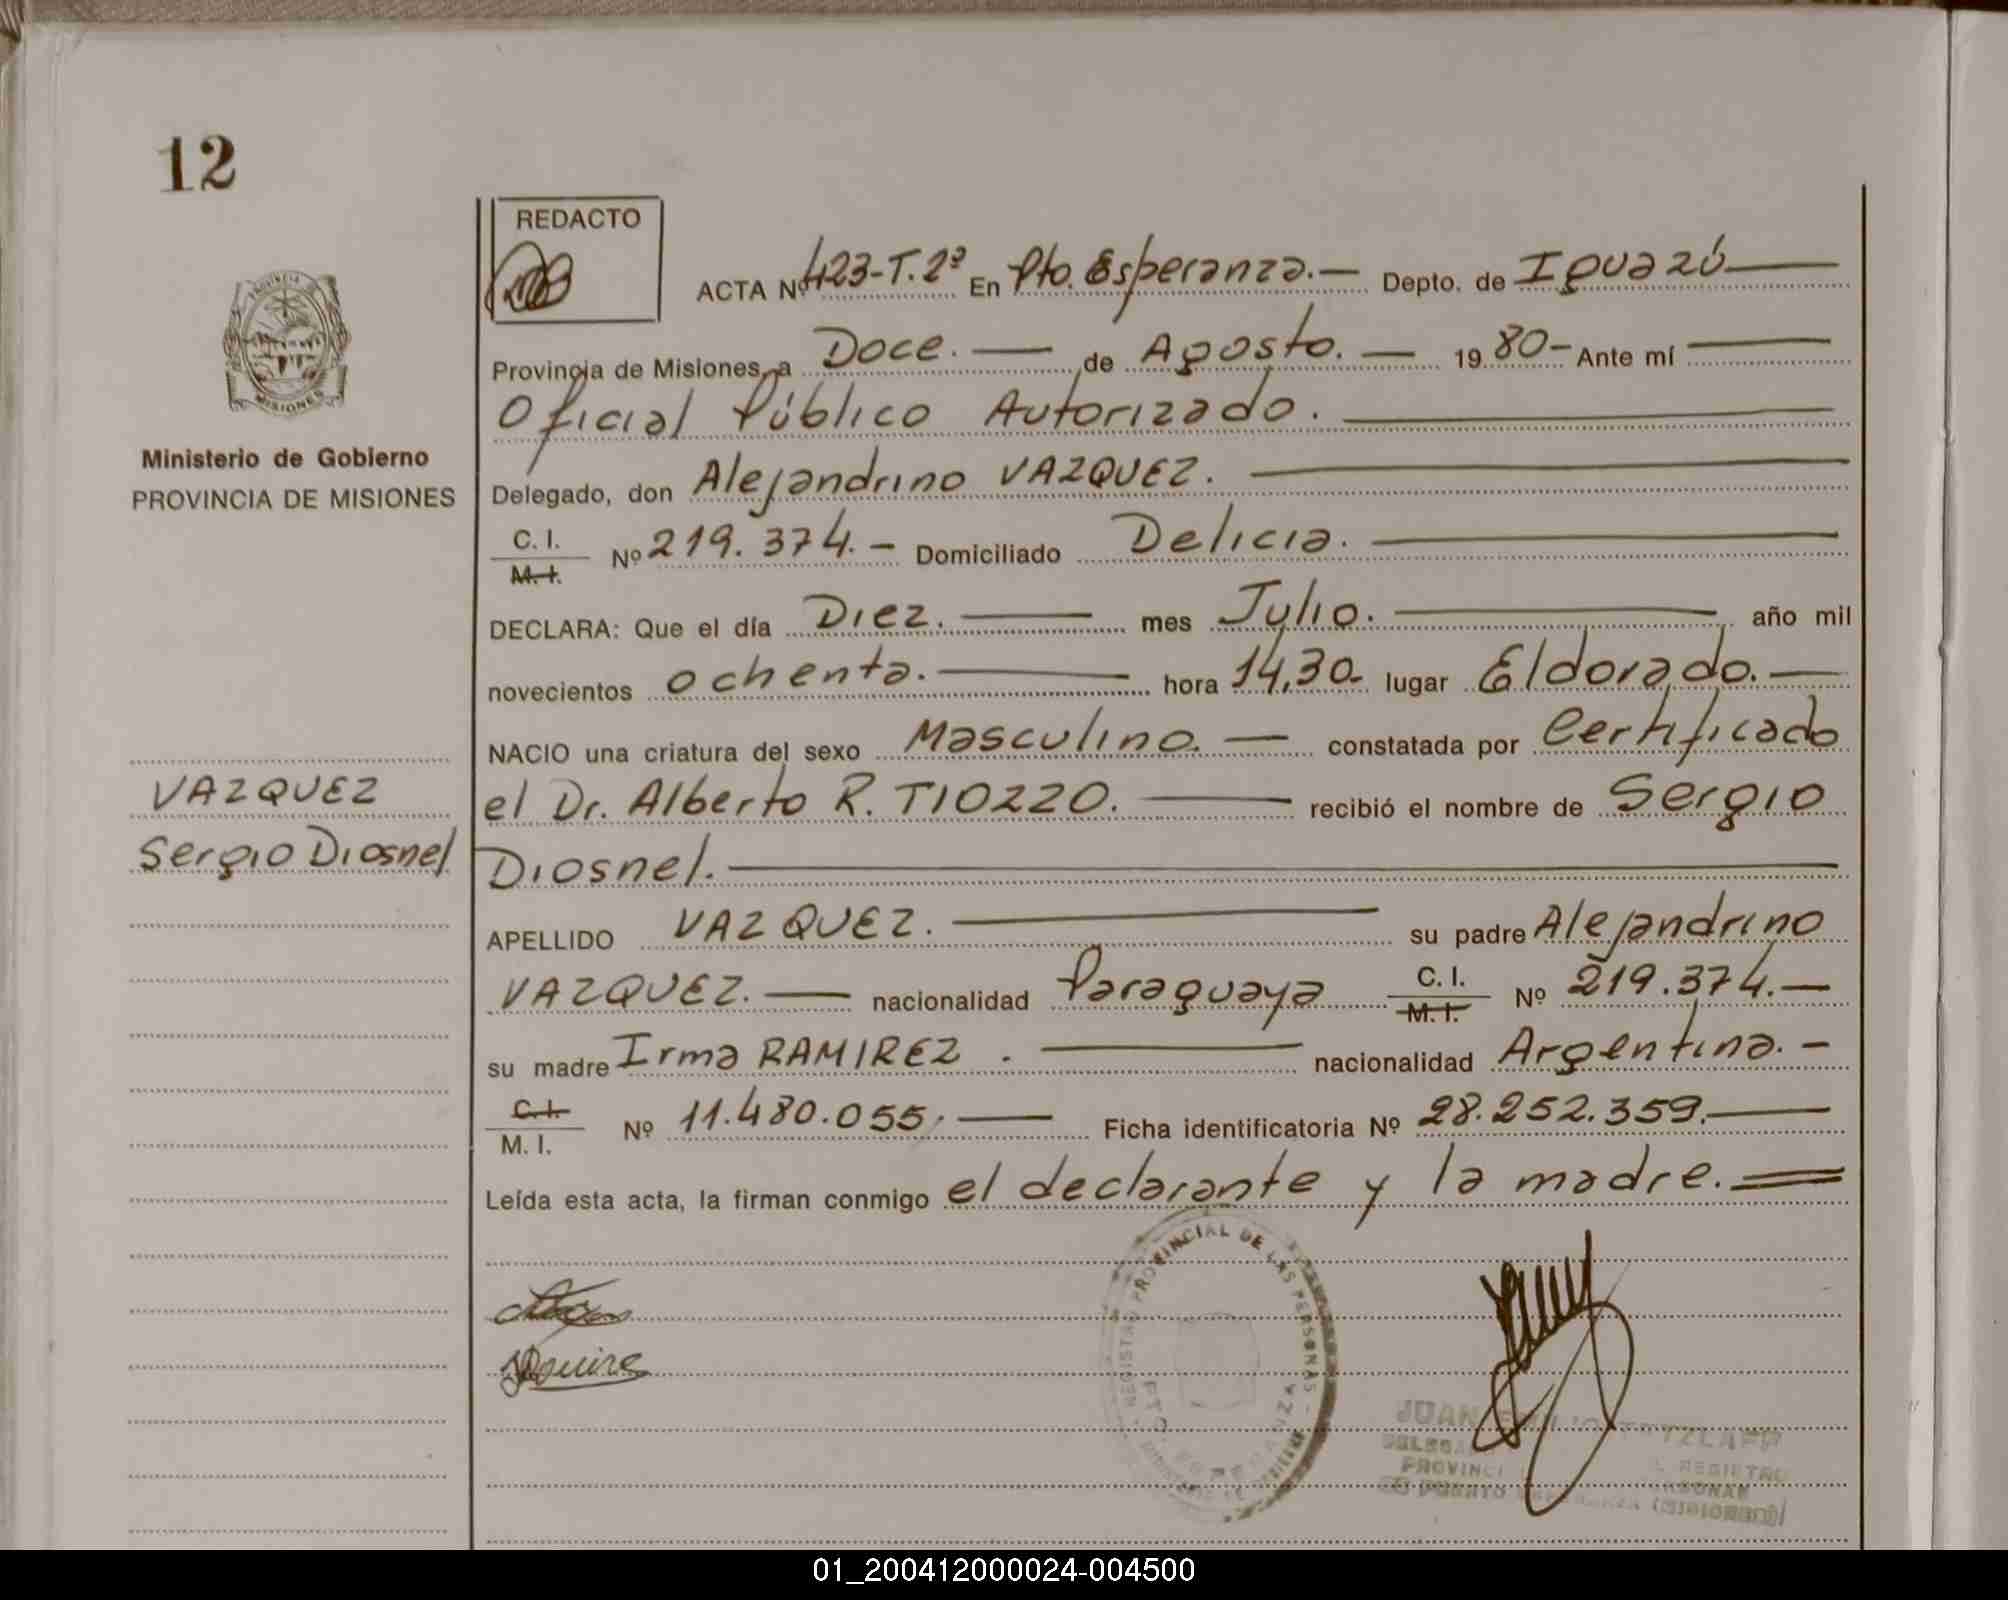 12
REDACTO
ACTA Nº 423-T.2º En Pto. Esperanza.— Depto. de Iguazú —
Provincia de Misiones, a Doce. — de Agosto. — 19 80- Ante mí —
Oficial Público Autorizado. —
PROVINCIA
MISIONES
Ministerio de Gobierno
PROVINCIA DE MISIONES
Delegado, don Alejandrino VAZQUEZ. —
C. I.
M. I. Nº 219.374.- Domiciliado Delicia. —
DECLARA: Que el día Diez. — mes Julio. — año mil
novecientos ochenta. — hora 14,30- lugar Eldorado. —
NACIO una criatura del sexo Masculino. — constatada por Certificado
VAZQUEZ
el Dr. Alberto R. TIOZZO. — recibió el nombre de Sergio
Sergio Diosnel
Diosnel. —
APELLIDO VAZQUEZ. — su padre Alejandrino
VAZQUEZ. — nacionalidad Paraguaya C. I.
M. I. Nº 219.374.—
su madre Irma RAMIREZ . — nacionalidad Argentina. -
C. I.
M. I. Nº 11.480.055. — Ficha identificatoria Nº 28.252.359. —
Leída esta acta, la firman conmigo el declarante y la madre. =
REGISTRO PROVINCIAL DE LAS PERSONAS
PTO. ESPERANZA
JUAN
PROVINCI REGISTRO
PUERTO
01_200412000024-004500